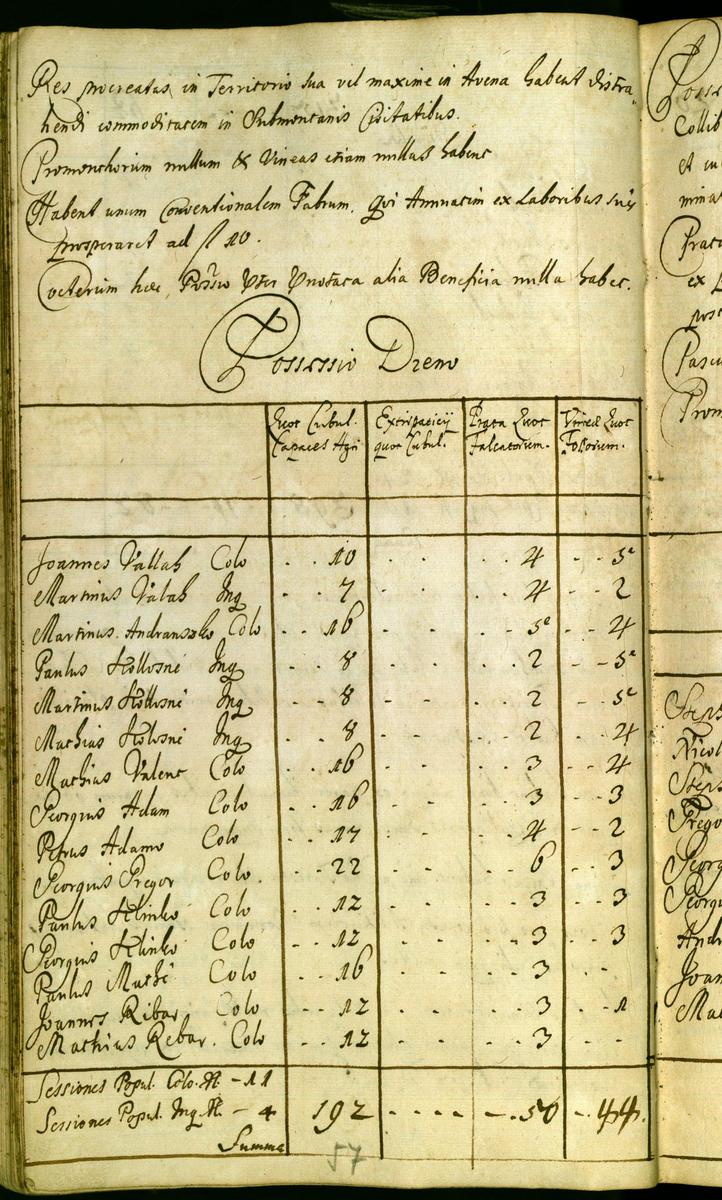 Res procreatas in Territorio sua vel maxime in Avena habent distra
hendi commoditatem in Submontanis Civitatibus.
Promonthorium nullum & Vineas etiam nullas habent
Habent unum Conventionalem Fabrum, qvi Annuatim ex Laboribus suis
prosperaret ad fl 10.
Coeterum haec Possio alia Beneficia nulla habet.
Possessio Dreno
Quot Cubul. Capaces Agri
Extirpaticij quot Cubul.
Prata Quot Falcatorum.
Vineae Quot Fossorum.
Joannes Vallah Colo - - 10 - - 4 - - 5
Martinus Valah Inq - - 7 - - 4 - - 2
Martinus Andranszko Colo - - 16 - - 5 - - 4
Paulus Kollosne Inq - - 8 - - 2 - - 5
Martinus Kollosne Inq - - 8 - - 2 - - 5
Mathias Kolosne Inq - - 8 - - 2 - - 4
Mathias Valent Colo - - 16 - - 3 - - 4
Georgius Adam Colo - - 16 - - 3 - - 3
Petrus Adamo Colo - - 17 - - 4 - - 2
Georgius Gregor Colo - - 22 - - 6 - - 3
Paulus Klinko Colo - - 12 - - 3 - - 3
Georgius Klinko Colo - - 12 - - 3 - - 3
Paulus Mathe Colo - - 16 - - 3 - -
Joannes Ribar Colo - - 12 - - 3 - - 1
Mathias Rebar. Colo - - 12 - - 3 - -
Sessiones Popul. Colo. N. - 11
Sessiones Popul. Inq. N. - 4
Summa 192 - - - - - - 50 - 44.
57